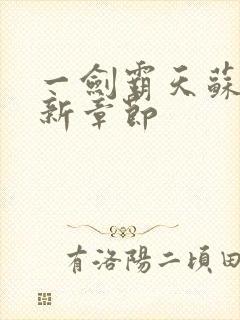 一劍霸天蘇
新章節
有洛陽二頃田